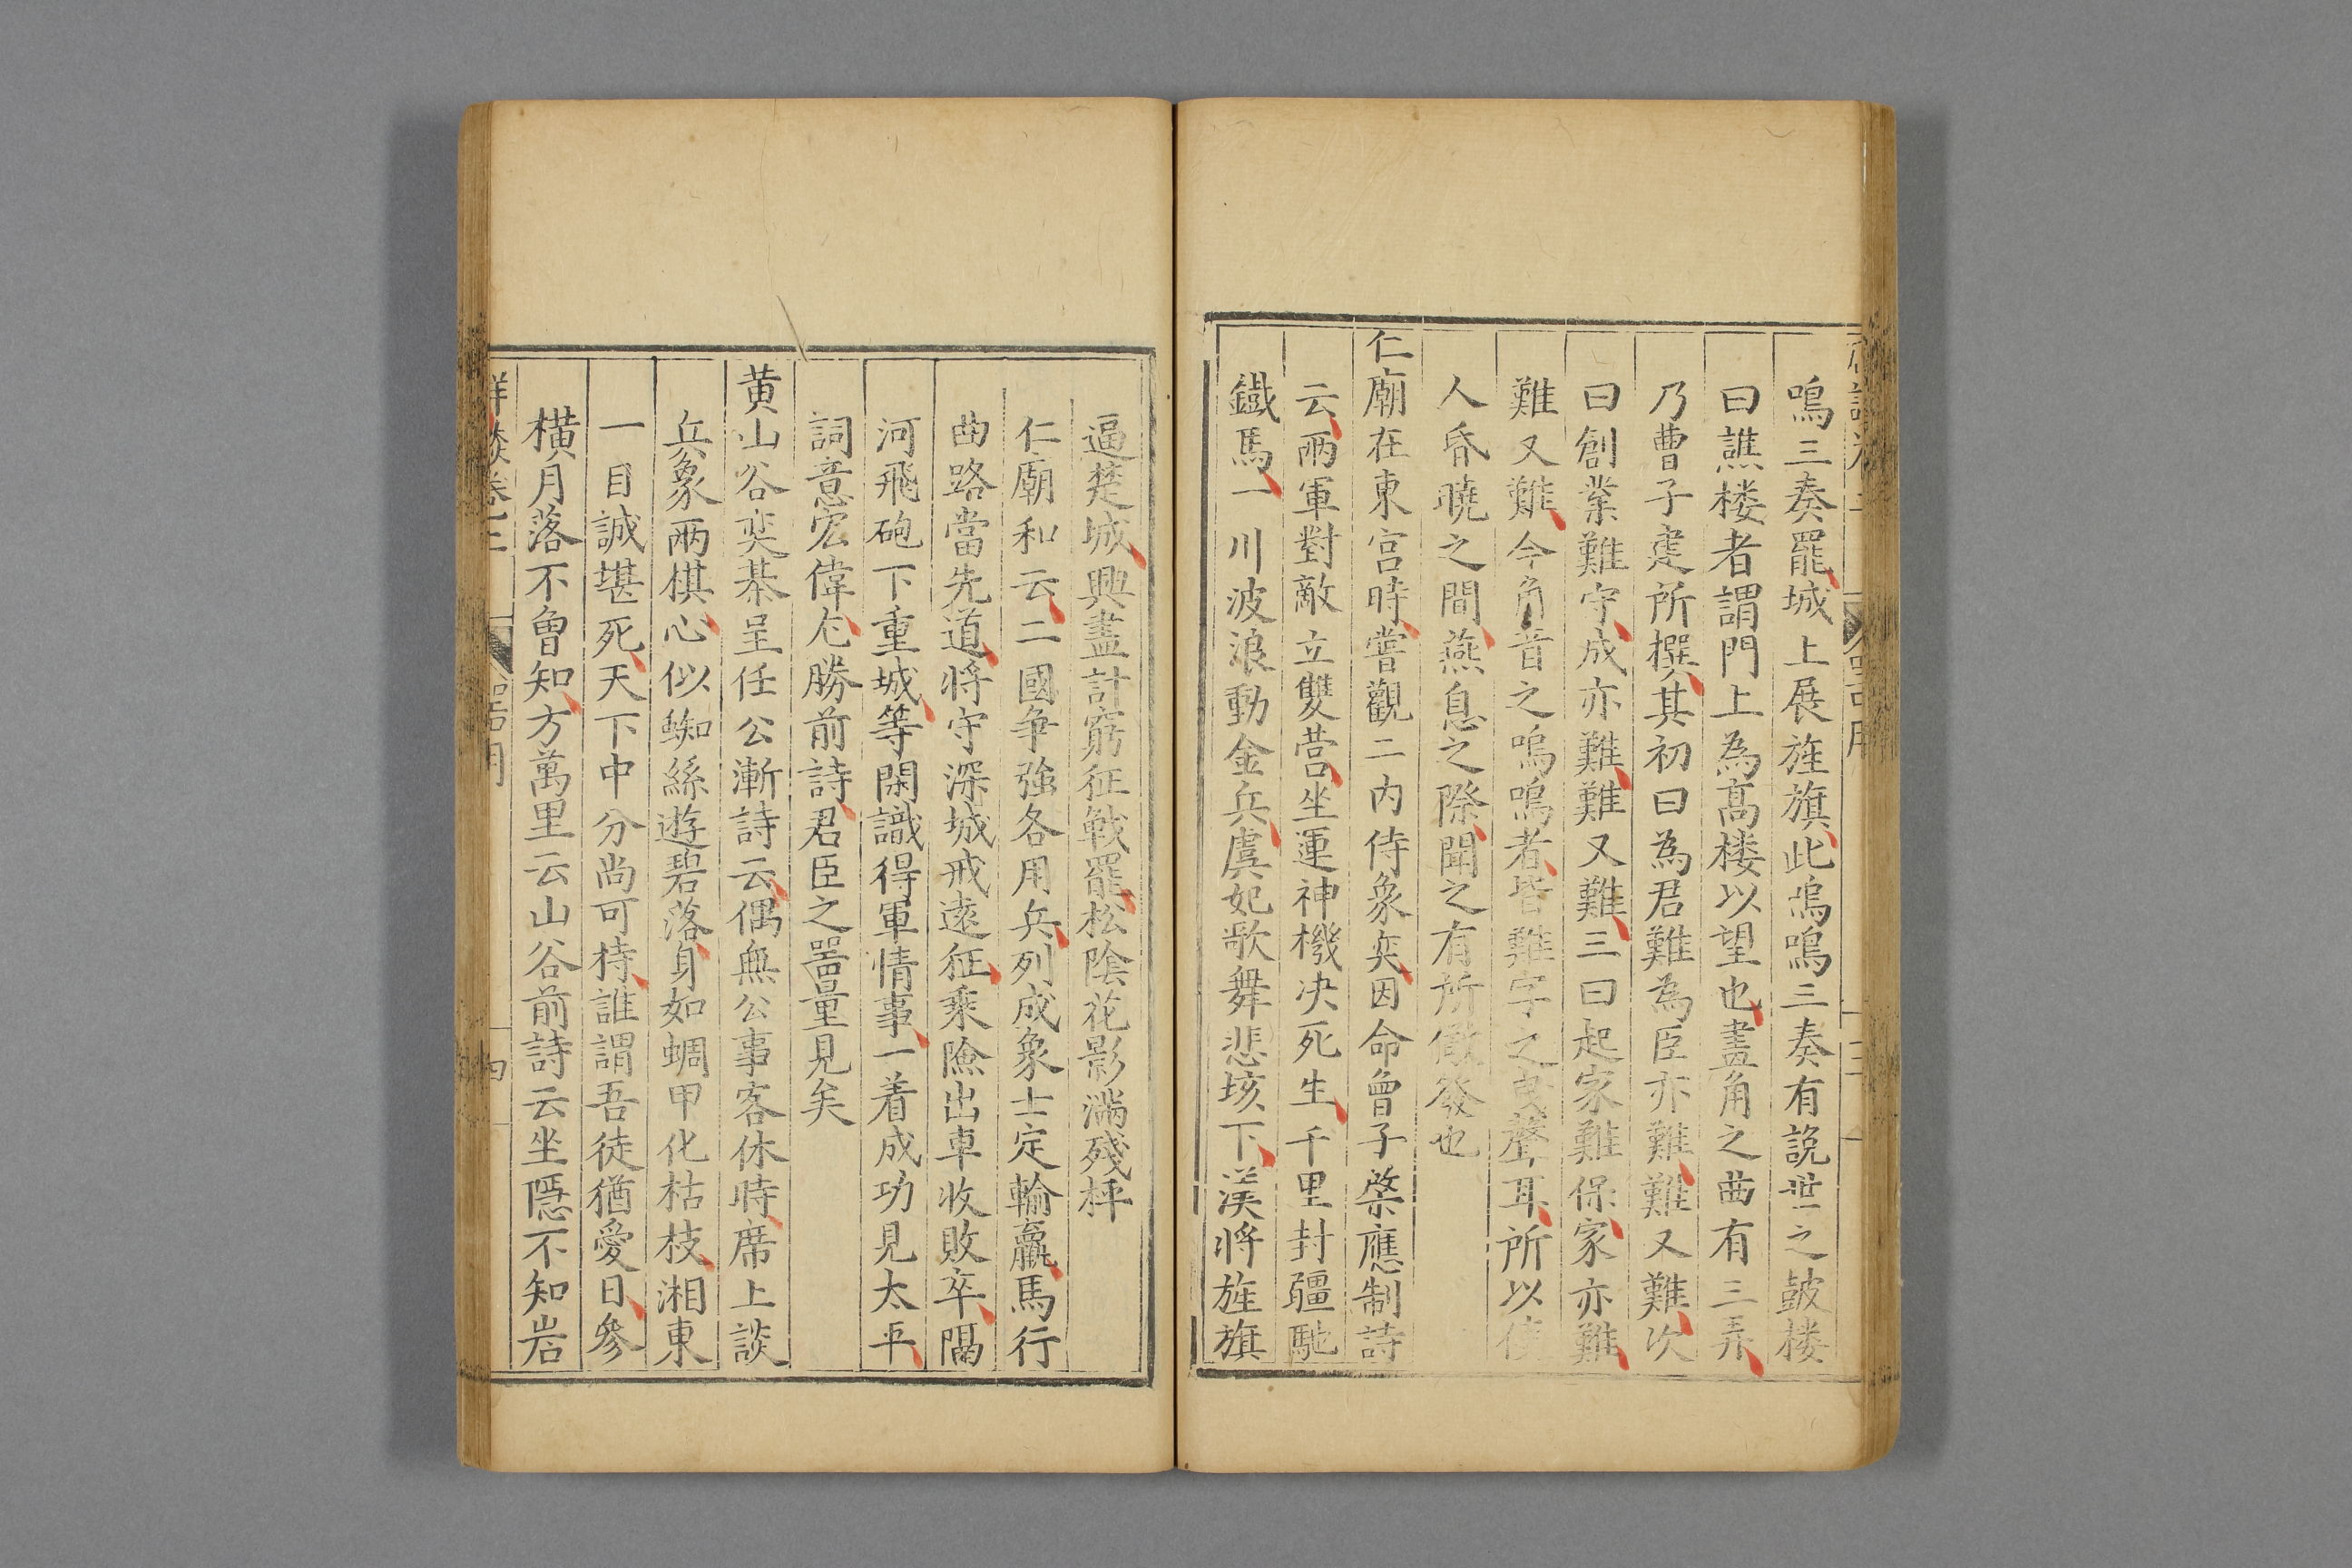 鳴三奏罷城上展旌旗此鳴鳴三奏有說世之鼓楼
曰譙楼者謂門上為高楼以望也畫角之曲有三弄
乃曹子建所撰其初曰為君難為臣亦難難又難次
曰創業難守成亦難難又難三曰起家難保家亦難
難又難今角音之嗚嗚者皆難字之曳聲耳所以使
人昏曉之間燕息之際聞之有所儆發也
仁廟在東宮時嘗觀二內侍象奕因命曾子棨應制詩
云兩軍對敵立雙營坐運神機决死生千里封疆馳
鐵馬一川波浪動金兵虞妃歌舞悲垓下漢將旌旗
逼楚城興盡計窮征戰罷松陰花影滿殘枰
仁廟和云二國争強各用兵列成象士定輸贏馬行
曲路當先道將守深城戒遠征乘險出車收敗卒隔
河飛砲下重城等閑識得軍情事一着成功見太平
詞意宏偉尤勝前詩君臣之噐量見矣
黄山谷奕棊呈任公漸詩云偶無公事客休時席上談
兵象兩棋心似蜘絲遊碧落身如蜩甲化枯枝湘東
一目誠堪死天下中分尚可持誰謂吾徒猶愛日參
橫月落不曾知方萬里云山谷前詩云坐隱不知岩
卷三
四